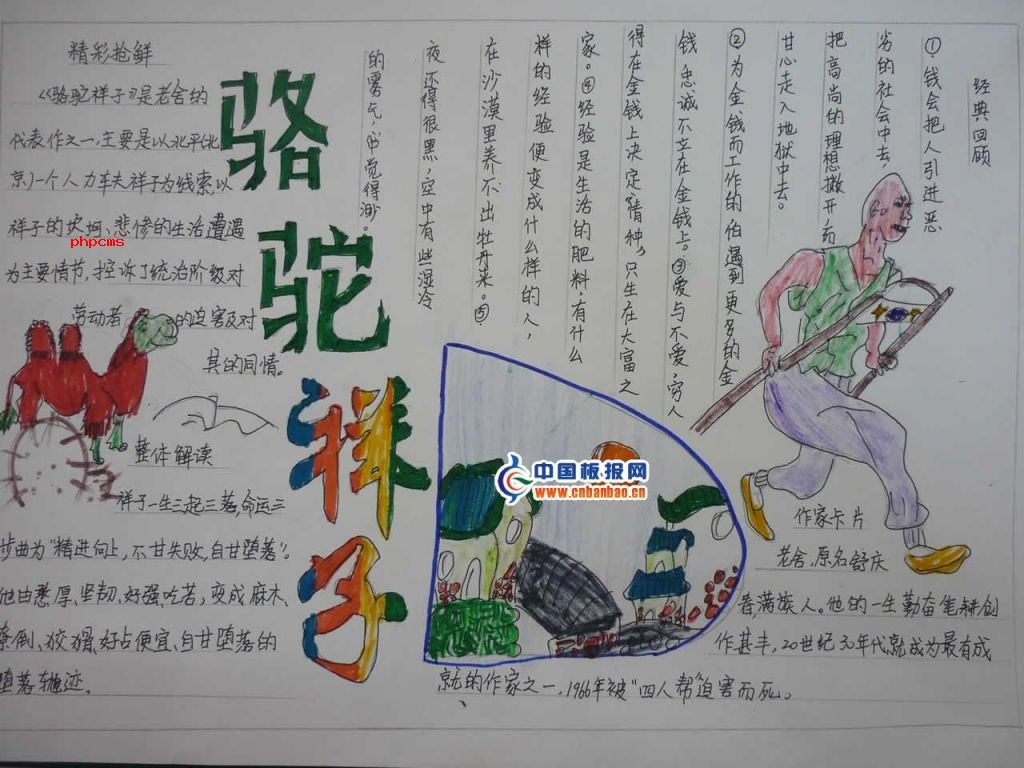 精彩抢鲜
《骆驼祥子》是老舍的
代表作之一,主要是以北平(北
京)一个人力车夫祥子为线索,以
祥子的坎坷、悲惨的生活遭遇
phpcms
为主要情节,控诉了统治阶级对
劳动者的迫害及对
其的同情。
整体解读
祥子一生三起三落,命运三
步曲为"精进向上,不甘失败,自甘堕落"。
他由憨厚、坚韧、好强、吃苦,变成麻木、
潦倒、狡猾、好占便宜、自甘堕落的
堕落轨迹。
骆
驼
祥
子
经典回顾
①钱会把人引进恶
劣的社会中去,
把高尚的理想撇开,而
甘心走入地狱中去。
②为金钱而工作的,怕遇到更多的金
钱,忠诚不立在金钱上。③爱与不爱,穷人
得在金钱上决定,情种,只生在大富之
家。④经验是生活的肥料,有什么
样的经验便变成什么样的人,
在沙漠里养不出牡丹来。⑤
夜还得很黑,空中有些湿冷
的雾气,心中觉得渺。
中国板报网
www.cnbanbao.cn
作家卡片
老舍,原名舒庆
春,满族人。他的一生勤奋笔耕,创
作甚丰,20世纪30年代就成为最有成
就的作家之一,1966年被"四人帮"迫害而死。